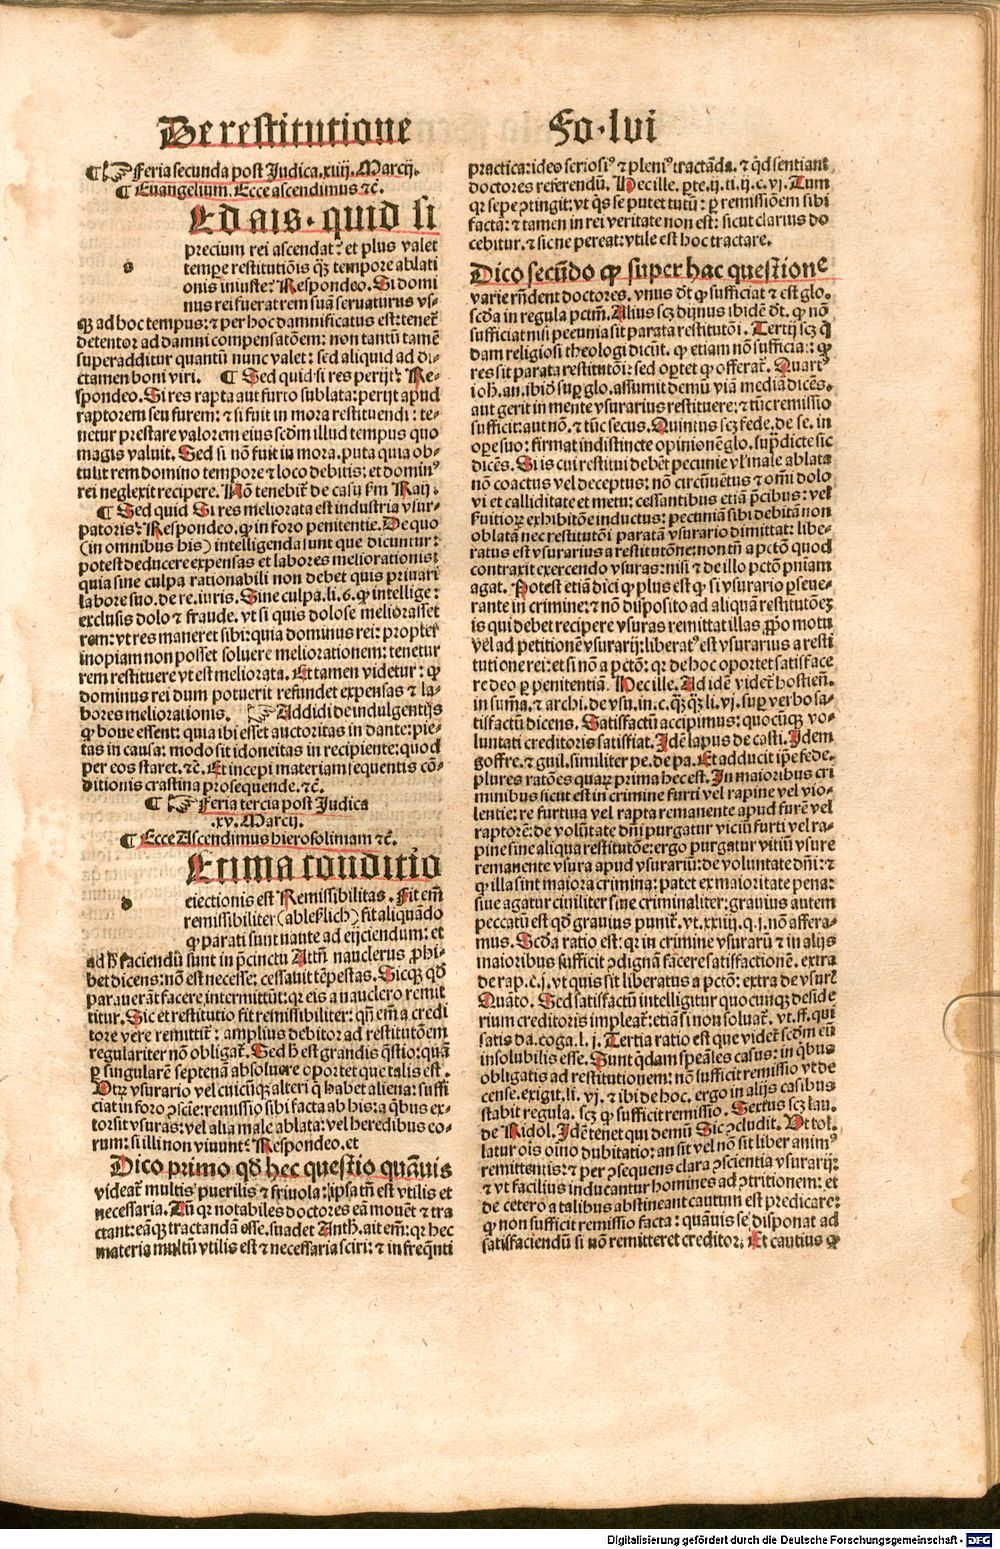 De restitutione
Fo. lvi
¶ ☞ Feria secunda post Judica .xiiij. Marcij.
¶ Euangelium. Ecce ascendimus ⁊c̄.
SEd ais. quid si
precium rei ascendat? et plus valet
tempe restitutiōis q̄ꝫ tempore ablati
s
onis iniuste? Respondeo. Si domi
nus rei fuerat rem suā seruaturus vs-
qꝫ ad hoc tempus: ⁊ per hoc damnificatus est: tenet᷑
detentor ad damni compensatōem: non tantū tamē
superadditur quantū nunc valet: sed aliquid ad di-
ctamen boni viri. ¶ Sed quid si res perijt? Re-
spondeo. Si res rapta aut furto sublata: perijt apud
raptorem seu furem: ⁊ si fuit in mora restituendi: te-
netur prestare valorem eius scd̄m illud tempus quo
magis valuit. Sed si nō fuit in mora. puta quia ob-
tulit rem domino tempore ⁊ loco debitis: et dominꝰ
rei neglexit recipere. Nō tenebit᷑ de casu ẜm Ray.
¶ Sed quid Si res meliorata est industria vsur-
patoris? Respondeo. ꝙ in foro penitentie. De quo
(in omnibus his) intelligenda sunt que dicuntur:
potest deducere expensas et labores meliorationis:
quia sine culpa rationabili non debet quis priuari
labore suo. de re. iuris. Sine culpa. li. 6. ꝙ intellige:
exclusis dolo ⁊ fraude. vt si quis dolose meliorasset
rem: vt res maneret sibi: quia dominus rei: propter
inopiam non posset soluere meliorationem: tenetur
rem restituere vt est meliorata. Et tamen videtur: ꝙ
dominus rei dum potuerit refundet expensas ⁊ la-
bores meliorationis. ☞ Addidi de indulgentijs
ꝙ bone essent: quia ibi esset auctoritas in dante: pie-
tas in causa: modo sit idoneitas in recipiente: quod
per eos staret. ⁊c̄. Et incepi materiam sequentis cō-
ditionis crastina prosequende. ⁊c̄.
¶ ☞ Feria tercia post Judica
.xv. Marcij.
¶ Ecce Ascendimus hierosolimam ⁊c̄.
SExima conditio
eiectionis est Remissibilitas. Fit em̄
remissibiliter (ableßlich) fit aliquādo
ꝙ parati sunt naute ad eijciendum: et
ad h̄ faciendū sunt in p̄cinctu Attn̄ nauclerus ꝓhi-
bet dicens: nō est necesse: cessauit tēpestas. Sicqꝫ qd̄
parauerāt facere, intermittūt: qꝛ eis a nauclero remit
titur. Sic et restitutio fit remissibiliter: qn̄ em̄ a credi
tore vere remittit᷑: amplius debitor ad restitutōem
regulariter nō obligat᷑. Sed h̄ est grandis q̄stio: quā
ꝑ singularē septenā absoluere oportet que talis est.
Vtꝝ vsurario vel cuicūqꝫ alteri q̄ habet aliena: suffi
ciat in foro ꝯscie: remissio sibi facta ab his: a q̄bus ex-
torsit vsuras: vel alia male ablata: vel heredibus eo-
rum: si illi non viuunt? Respondeo. et
Dico primo qd̄ hec questio quāuis
videat᷑ multis puerilis ⁊ friuola: ipsa tn̄ est vtilis et
necessaria. Tū qꝛ notabiles doctores eā mouēt ⁊ tra
ctant: eāqꝫ tractandā esse. suadet Anth. ait em̄: qꝛ hec
materia multū vtilis est ⁊ necessaria sciri: ⁊ in freq̄nti
practica: ideo seriosiꝰ ⁊ pleniꝰ tractāda. ⁊ qd̄ sentiant
doctores referendū. Hec ille. ꝑte. ij. ti. ij. c. vj. Tum
qꝛ sepe ꝯtingit: vt q̄s se putet tutū: ꝑ remissiōem sibi
factā: ⁊ tamen in rei veritate non est: sicut clarius do
cebitur. ⁊ sic ne pereat: vtile est hoc tractare.
Dico secūdo ꝙ super hac questione
varie rn̄dent doctores. vnus dt̄ ꝙ sufficiat ⁊ est glo.
scd̄a in regula pctm̄. Alius scꝫ dynus ibidē dt̄. ꝙ nō
sufficiat nisi pecunia sit parata restitutōi. Tertij scꝫ q̄
dam religiosi theologi dicūt. ꝙ etiam nō sufficiat: ꝙ
res sit parata restitutōi: sed oꝑtet ꝙ offerat᷑. Quartꝰ
ioh. an. ibid̄ suꝑ glo. assumit demū viā mediā dicēs.
aut gerit in mente vsurarius restituere: ⁊ tūc remissio
sufficit: aut nō. ⁊ tūc secus. Quintus scꝫ fede. de se. in
oꝑe suo: firmat indistincte opinionē glo. sup̄dicte sic
dicēs. Si is cui restitui debēt pecunie vꝉ male ablata
nō coactus vel deceptus: nō circūuētus ⁊ om̄i dolo
vi et calliditate et metu: cessantibus etiā p̄cibus: vel
ẜuitioꝝ exhibitōe inductus: pecuniā sibi debitā non
oblatā nec restitutōi paratā vsurario dimittat: libe-
ratus est vsurarius a restitutōne: non tn̄ a pctō quod
contraxit exercendo vsuras: nisi ⁊ de illo pctō pniam
agat. Potest etiā dici ꝙ plus est ꝙ si vsurario ꝑseue-
rante in crimine: ⁊ nō disposito ad aliquā restitutōeꝫ
is qui debet recipere vsuras remittat illas ꝓprio motu
vel ad petitionē vsurarij: liberatꝰ est vsurarius a resti
tutione rei: et si nō a pctō: qꝛ de hoc oportet satisface
re deo ꝑ penitentiā. Hec ille. Ad idē videt᷑ hostien̄.
in sum̄a. ⁊ archi. de vsu. in. c. q̄ꝫq̄ꝫ li. vj. suꝑ verbo sa-
tisfactū dicens. Satisfactū accipimus: quocūqꝫ vo-
luntati creditoris satisfiat. Idē lapus de casti. Idem
goffre. ⁊ guil. similiter pe. de pa. Et adducit ip̄e fede.
plures ratōes quaꝝ prima hec est. In maioribus cri
minibus sicut est in crimine furti vel rapine vel vio-
lentie: re furtiua vel rapta remanente apud furē vel
raptorē: de volūtate dn̄i purgatur viciū furti vel ra-
pine sine aliqua restitutōe: ergo purgatur vitiū vsure
remanente vsura apud vsurariū: de voluntate dn̄i: ⁊
ꝙ illa sint maiora crimina: patet ex maioritate pena:
siue agatur ciuiliter siue criminaliter: grauius autem
peccatū est qd̄ grauius punit᷑. vt. xxiiij. q. j. nō affera-
mus. Scd̄a ratio est: qꝛ in crimine vsurarū ⁊ in alijs
maioribus sufficit ꝯdignā facere satisfactionē. extra
de rap. c. j. vt quis sit liberatus a pctō: extra de vsur̄.
Quāto. Sed satisfactū intelligitur quocunqꝫ deside
rium creditoris impleat᷑: etiā si non soluat᷑. vt. ff. qui
satis da. coga. l. j. Tertia ratio est que videt᷑ scd̄m eū
insolubilis esse. Sunt q̄dam sp̄eales casus: in q̄bus
obligatis ad restitutionem: nō sufficit remissio vt de
cense. exigit. li. vj. ⁊ ibi de hoc. ergo in alijs casibus
stabit regula. scꝫ ꝙ sufficit remissio. Sextus scꝫ lau.
de Ridol. Idē tenet qui demū Sic ꝯcludit. Vt tol-
latur oīs oīno dubitatio: an sit vel nō sit liber animꝰ
remittentis: ⁊ per ꝯsequens clara ꝯscientia vsurarij:
⁊ vt facilius inducantur homines ad ꝯtritionem: et
de cetero a talibus abstineant cautum est predicare:
ꝙ non sufficit remissio facta: quāuis se disponat ad
satisfaciendū si nō remitteret creditor: Et cautius ꝙ
Digitalisierung gefördert durch die Deutsche Forschungsgemeinschaft - DFG